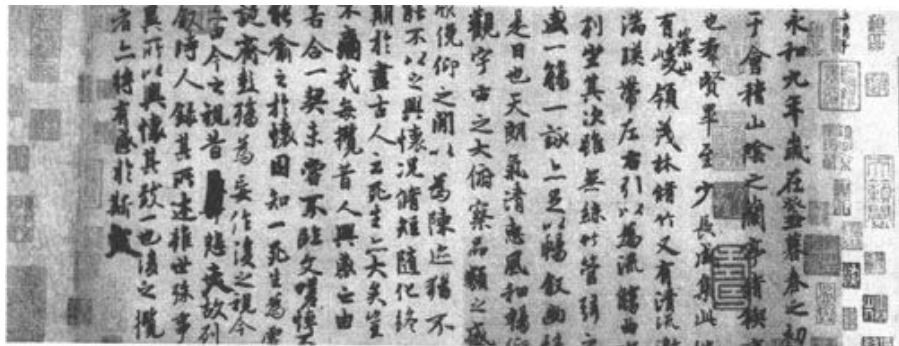 永和九年歲在癸丑暮春之初
于會稽山陰之蘭亭脩稧事
也群賢畢至少長咸集此地
有崇山峻領茂林脩竹又有清流激
湍暎帶左右引以為流觴曲水
列坐其次雖無絲竹管弦之
盛一觴一詠亦足以暢叙幽情
是日也天朗氣清惠風和暢仰
觀宇宙之大俯察品類之盛
欣俛仰之閒以為陳迹猶不
能不以之興懷況脩短隨化終
期於盡古人云死生亦大矣豈
不痛哉每攬昔人興感之由
若合一契未嘗不臨文嗟悼不
能喻之於懷固知一死生為虛
誕齊彭殤為妄作後之視今
亦由今之視昔悲夫故列
叙時人錄其所述雖世殊事
異所以興懷其致一也後之攬
者亦將有感於斯文